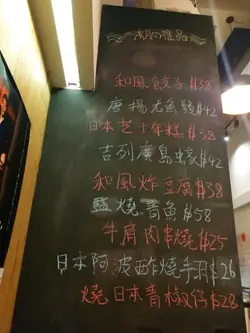 本月の推品
和風餃子$38
唐揚尤魚鬚$42
日本芝士年糕$38
吉列廣島蠔$42
和風炸豆腐$38
鹽燒青魚$58
牛肩肉串燒$25
日本阿波酢燒手羽$26
燒日本青椒仔$28